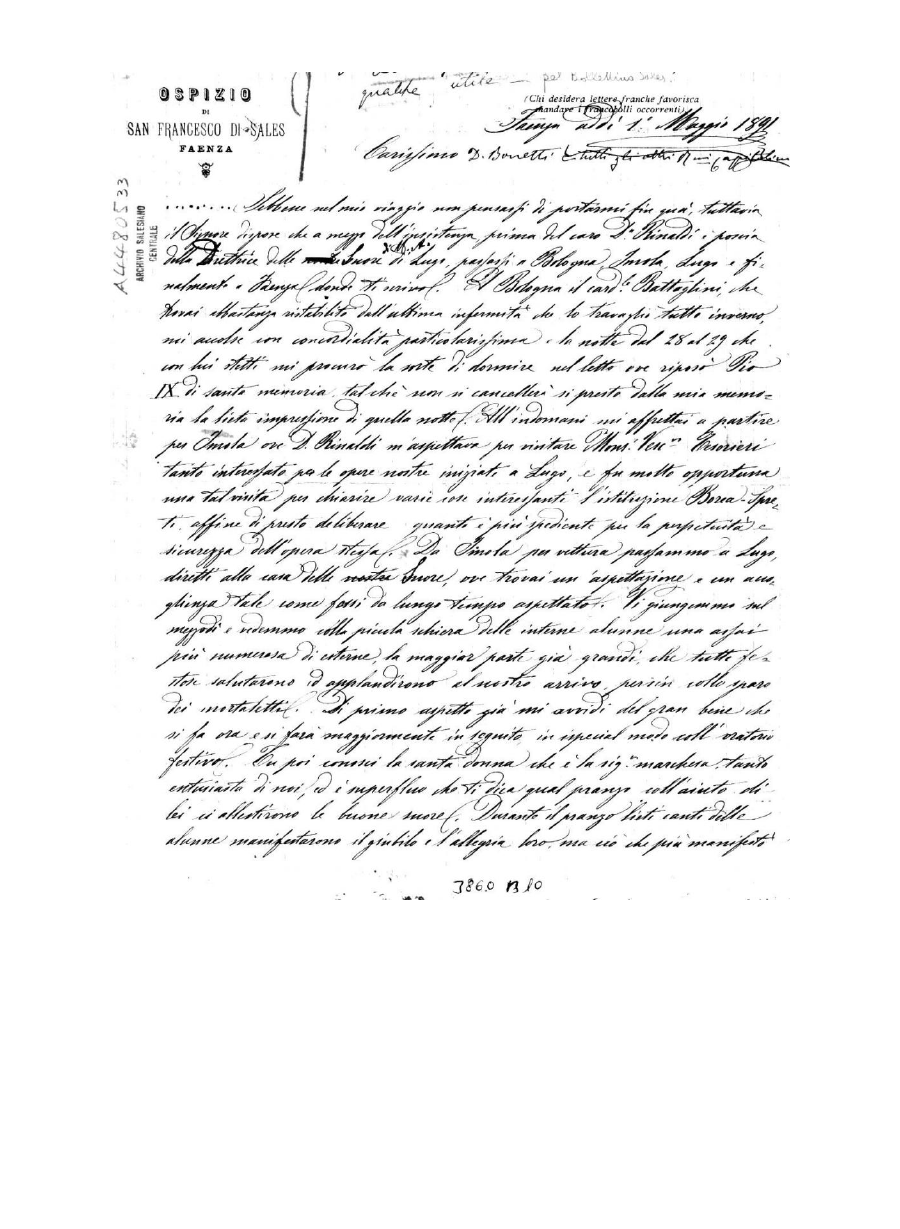 qualche utile — pel Bollettino Sales.
OSPIZIO
DI
SAN FRANCESCO DI SALES
FAENZA
(Chi desidera lettere franche favorisca
mandare i francobolli occorrenti).
Faenza addì 1° Maggio 1891
Carissimo D. Bonetti e tutti gli altri
A4480533
ARCHIVIO SALESIANO
CENTRALE
........ Sebbene nel mio viaggio non pensassi di portarmi fin quà, tuttavia
il Signore dispose che a mezzo dell'insistenza, prima del caro D. Rinaldi e poscia
della Direttrice delle Suore di Lugo, passassi a Bologna, Imola, Lugo e fi-
nalmente a Faenza donde ti scrivo. A Bologna il card.e Battaglini, che
trovai abbastanza ristabilito dall'ultima infermità che lo travagliò tutto inverno,
mi accolse con concordialità particolarissima e la notte dal 28 al 29 che
con lui stetti mi procurò la sorte di dormire nel letto ove riposò Pio
IX di santa memoria, tal chè non si cancellerà sì presto dalla mia memo-
ria la lieta impressione di quella notte. All'indomani mi affrettai a partire
per Imola ove D. Rinaldi m'aspettava per visitare Mons. Tesorieri
tanto interessato per le opere nostre iniziate a Lugo, e fu molto opportuna
una tal visita per chiarire varie cose interessanti l'istituzione Borea-Spre-
ti, affine di presto deliberare quanto è più spediente per la perpetuità e
sicurezza dell'opera stessa. Da Imola per vettura passammo a Lugo,
diretti alla casa delle nostre Suore, ove trovai un'aspettazione e un acco-
glienza tale come fossi da lungo tempo aspettato. Vi giungemmo sul
mezzodì e vedemmo colla piccola schiera delle interne alunne una assai
più numerosa di esterne, la maggior parte già grandi, che tutte fe-
stose salutarono ed applaudirono al nostro arrivo, persin collo sparo
dei mortaletti. Di primo aspetto già mi avvidi del gran bene che
si fa ora e si farà maggiormente in seguito, in ispecial modo coll'oratorio
festivo. Tu poi conosci la santa donna che è la sig.ra marchesa, tanto
entusiasta di noi, ed è superfluo che ti dica qual pranzo coll'aiuto di
lei ci allestirono le buone suore. Durante il pranzo lieti canti delle
alunne manifestarono il giubilo e l'allegria loro, ma ciò che più manifestò
3860 B10